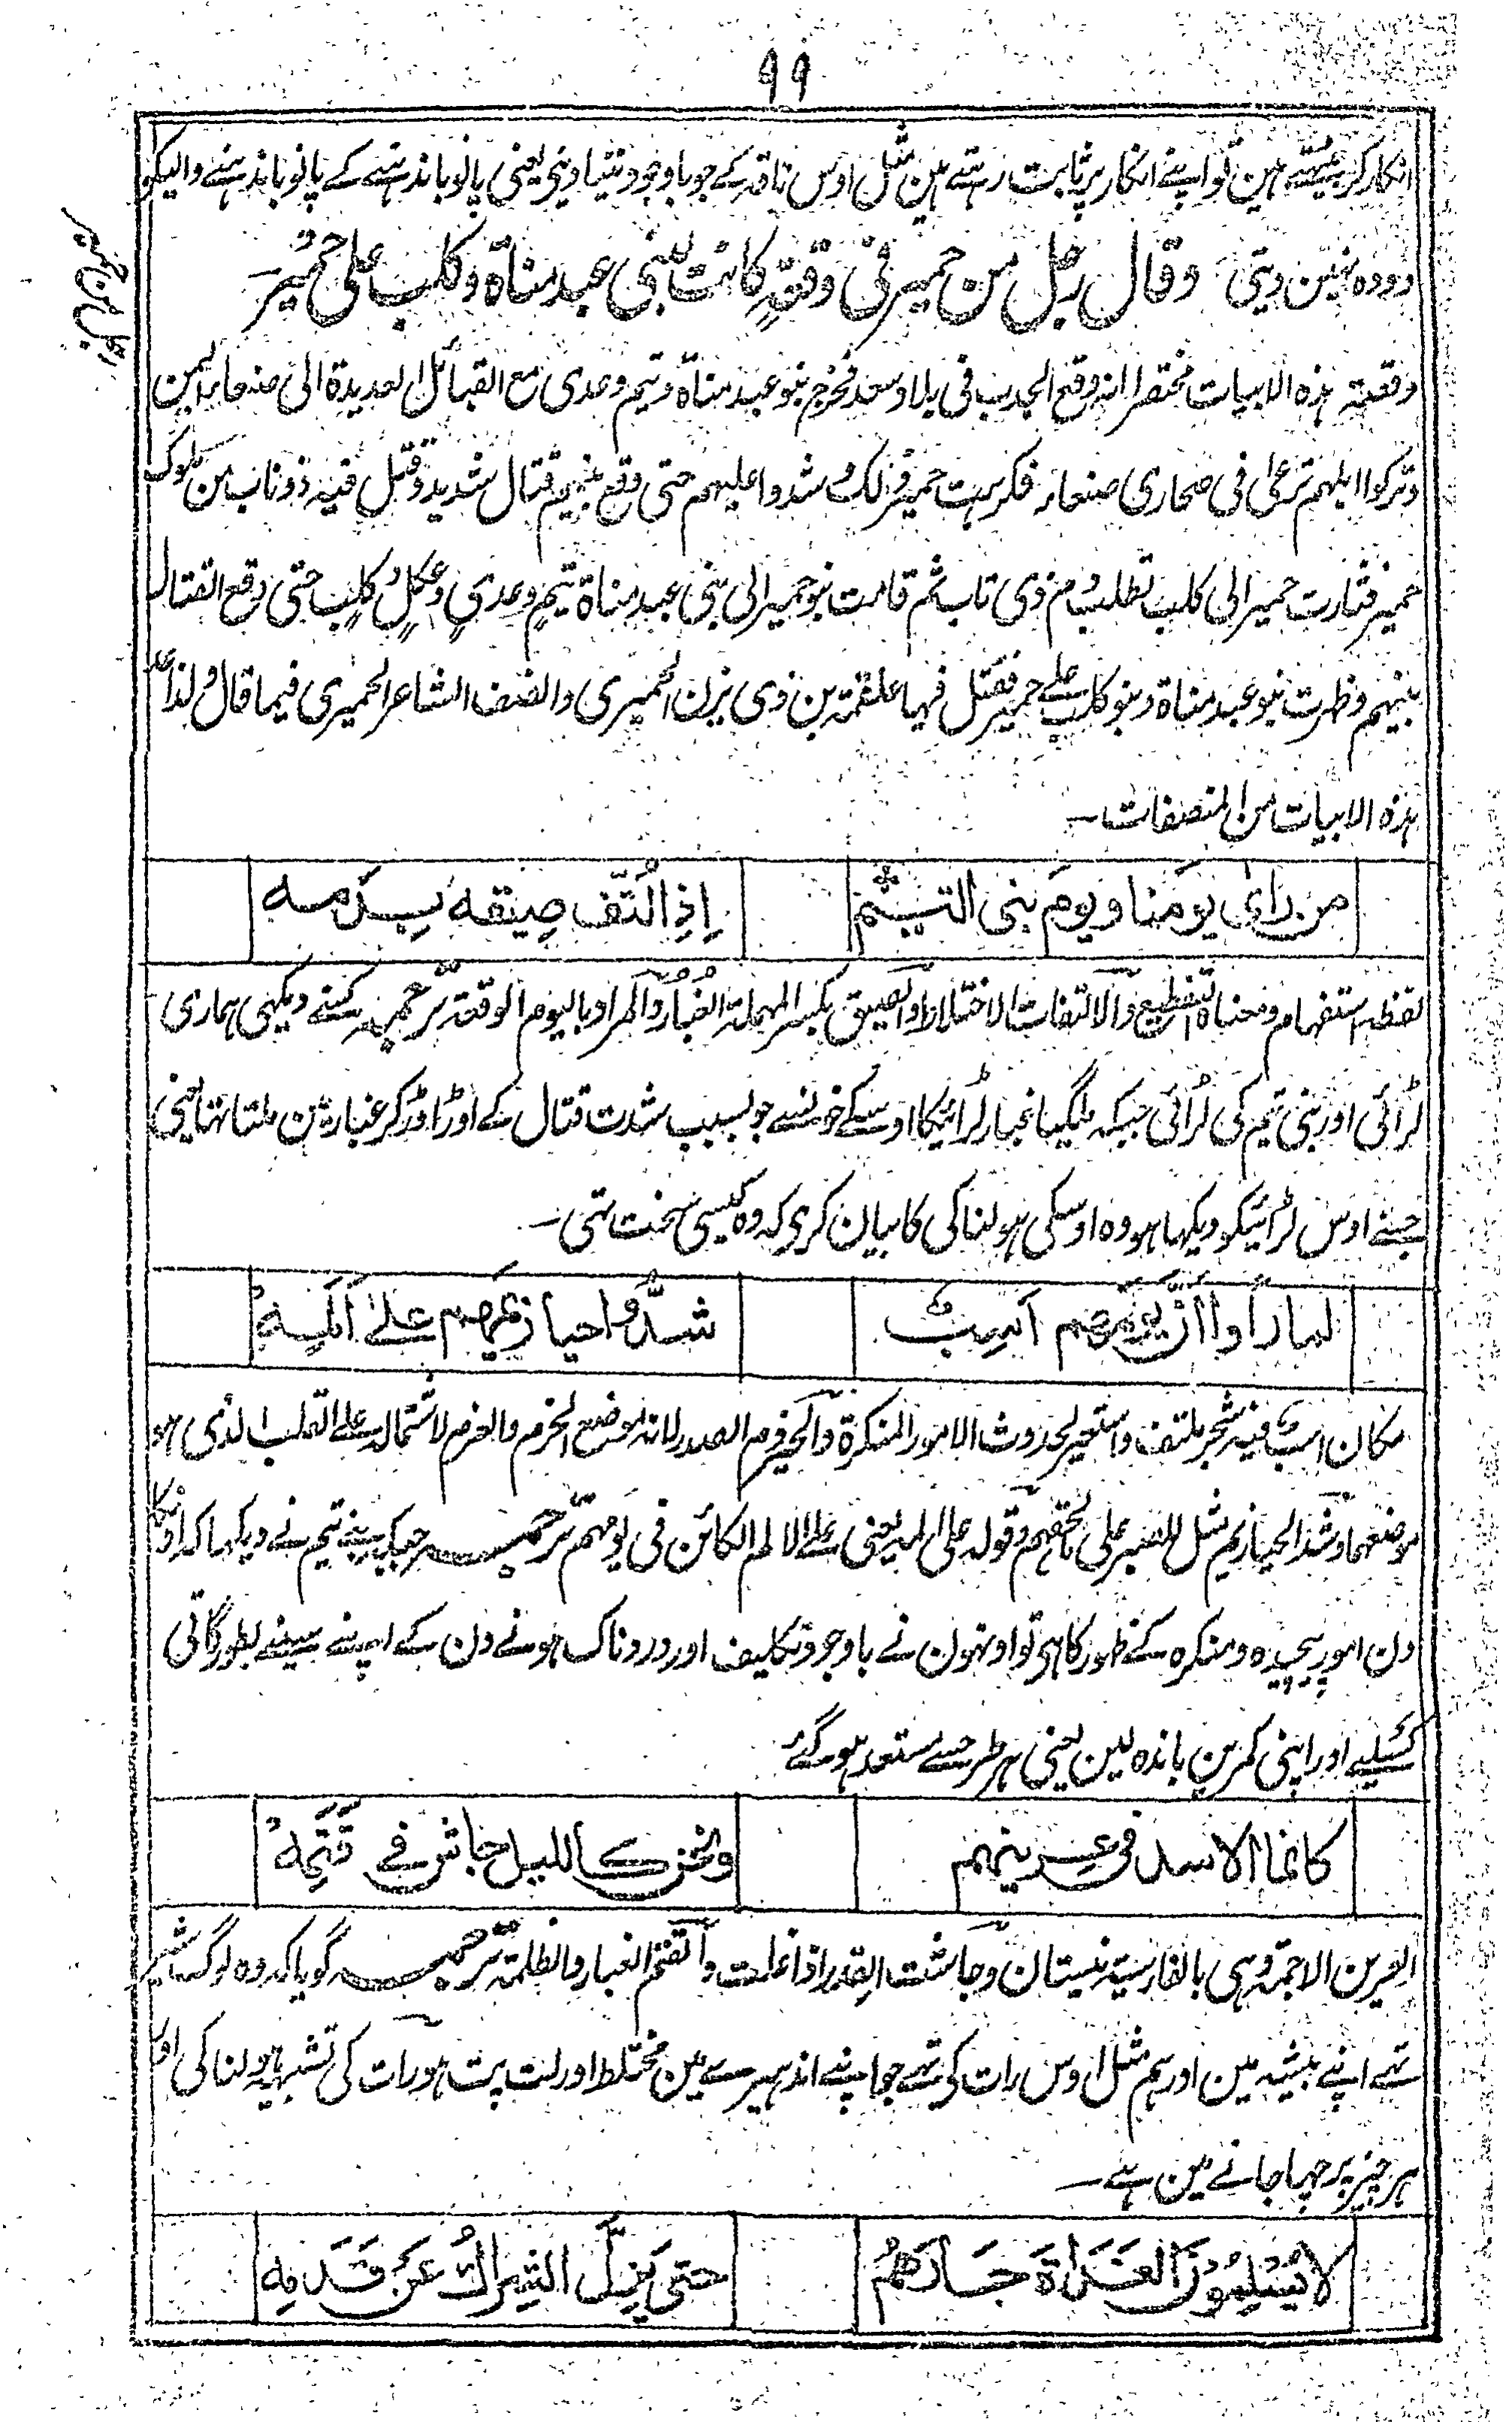 ۹۹
انکار کر بیٹھتے ہین تو اپنے انکار پر ثابت رہتے ہین مثل اوس ناقہ کے جو باوجود نتیا دینے یعنی پانو باندہنے کے پانو باندہنے والیکو
دودہ نہین دیتی وقال رجل من حمیر فی وقعةٍ کانت لبنی عبد مناة وکلب علی حمیر۔
رجل من حمیر
وقصة ہذہ الابیات مختصرا انہ وقع الجدب فی بلاد سعد فخرج بنو عبد مناة وتیم وعدی مع القبائل العدیدة الی صنعاء الیمن
وترکوا ابلہم ترعی فی صحاری صنعاء فکرہت حمیر ذلک وشدوا علیہم حتی وقع بینہم قتال شدید وقتل فیہ ذوناب من ملوک
حمیر فثارت حمیر الی کلب تطلب دم ذی ناب ثم قامت بنو حمیر الی بنی عبد مناة تیمٍ وعدیٍ وعکلٍ وکلبٍ حتی وقع القتال
بینہم وظہرت بنو عبد مناة وبنو کلب علی حمیر فقتل فیہا علقمة بن ذی یزن الحمیری وانصف الشاعر الحمیری فیما قال ولذا عد
ہذہ الابیات من المنصفات۔
من رأى يومنا ويوم بني التيم
إِذِ الْتَفَّ صِيقُه بِدَمِه
لفظہ استفہام ومعناہ التفظیع والالتفات الاختلاط والصیق بکسر المہملة الغبار والمراد بالیوم الوقعة ترجمہ کسنے دیکھی ہماری
لڑائی اور بنی تیم کی لڑائی جبکہ ملگیا غبار لڑائیکا اوسکے خونسے جو بسبب شدت قتال کے اوڑ اوڑ کر غبار مین ملتا تہا یعنی
جسنے اوس لڑائیکو دیکہا ہو وہ اوسکی ہولناکی کا بیان کری کہ وہ کیسی سخت تہی۔
لما رأوا أن يومهم أشب
شدّوا حيازيمهم على ألمه
مکان اشب فیہ شجر ملتف واستعیر لحدوث الامور المنکرة والحیزوم الصدر لانہ موضع الحزم والعزم لاشتمالہ علی القلب الذی ہو
موضعہما وشد الحیازیم مثل للصبر علی ما لحقہم وقولہ علی المہ یعنی علی الالم الکائن فی یومہم ترجمہ جبکہ بنے تیم نے دیکہا کہ اونکا
دن امور پیچیدہ ومنکرہ کے ظہور کا ہی تو اونہون نے باوجود تکلیف اور دردناک ہونے دن کے اپنے سینے بطور گاتی
کسلیے اور اپنی کمرین باندہ لین یعنی ہر طرحسے مستعد ہوگئے
كأنما الأسد في عرينهم
ونحن كالليل جاش في قتمه
العرین الاجمة وہی بالفارسیة نیستان وجاشت القدر اذا غلت والقتم الغبار والظلمة ترجمہ گویا کہ وہ لوگ شیر
تہے اپنے بیشہ مین اور ہم مثل اوس رات کی تہے جو اپنے اندہیرے مین مختلط اور لت پت ہو رات کی تشبیہ ہولناکی اور
ہر چیز پر چہا جانے مین ہے۔
لا يُسْلِمُونَ الغَدَاةَ جَارَهُمُ
حتى يَزِلَّ الشِّرَاكُ عَنْ قَدَمِهِ